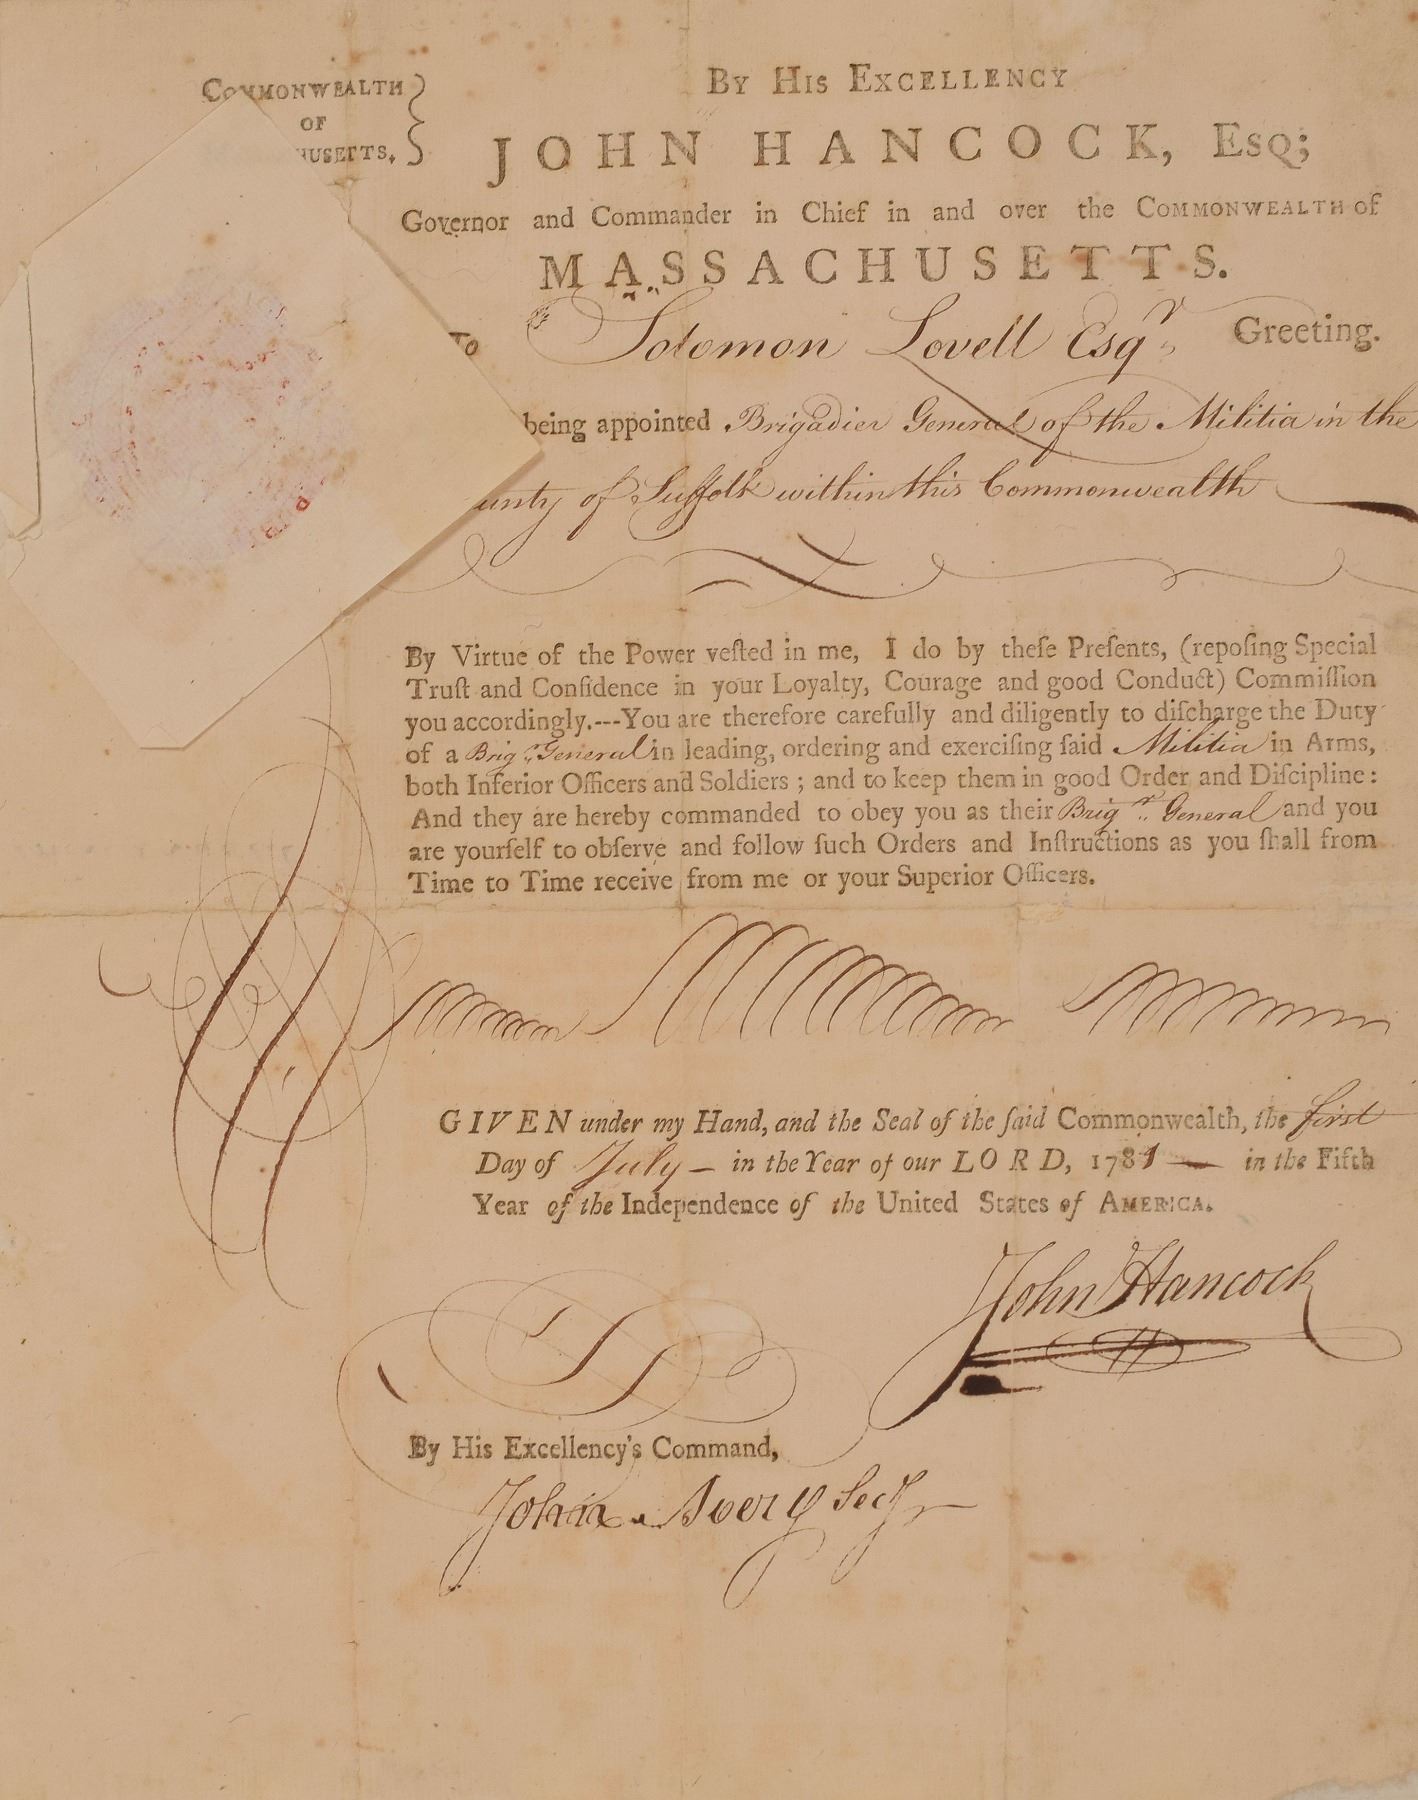 COMMONWEALTH
OF
HUSETTS,
BY HIS EXCELLENCY
JOHN HANCOCK, ESQ;
Governor and Commander in Chief in and over the COMMONWEALTH of
MASSACHUSETTS.
To Solomon Lovell Esqr Greeting.
being appointed Brigadier General of the Militia in the
unty of Suffolk within this Commonwealth
By Virtue of the Power veſted in me, I do by theſe Preſents, (repoſing Special
Truſt and Confidence in your Loyalty, Courage and good Conduct) Commiſſion
you accordingly.---You are therefore carefully and diligently to diſcharge the Duty
of a Brigr. General in leading, ordering and exerciſing ſaid Militia in Arms,
both Inferior Officers and Soldiers; and to keep them in good Order and Diſcipline:
And they are hereby commanded to obey you as their Brigr. General and you
are yourſelf to obſerve and follow ſuch Orders and Inſtructions as you ſhall from
Time to Time receive from me or your Superior Officers.
GIVEN under my Hand, and the Seal of the ſaid Commonwealth, the first
Day of July — in the Year of our LORD, 1781 — in the Fifth
Year of the Independence of the United States of AMERICA.
John Hancock
By His Excellency's Command,
John Avery Secy